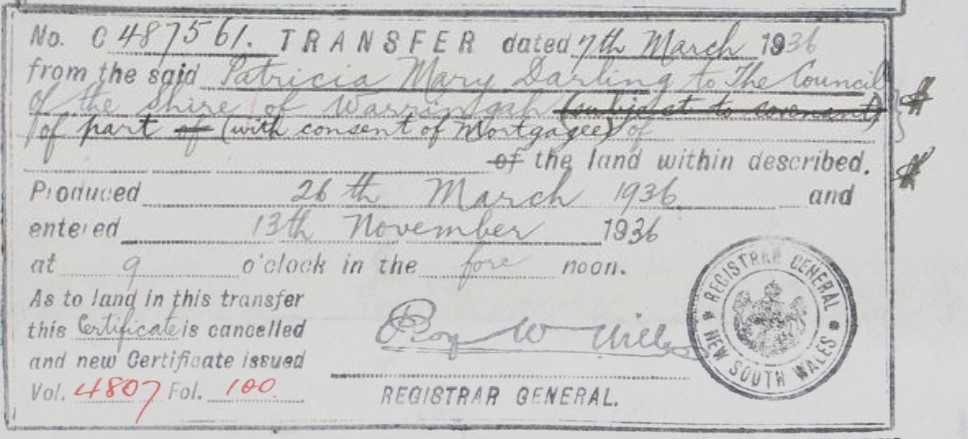 No. C 487561. TRANSFER dated 7th March 1936
from the said Patricia Mary Darling to The Council
of the Shire of Warringah (subject to covenant)
of part of (with consent of Mortgagee) of
of the land within described.
Produced 26th March 1936 and
entered 13th November 1936
at 9 o'clock in the fore noon.
As to land in this transfer
this Certificate is cancelled
and new Certificate issued
Vol. 4807 Fol. 100.
REGISTRAR GENERAL.
REGISTRAR GENERAL
NEW SOUTH WALES